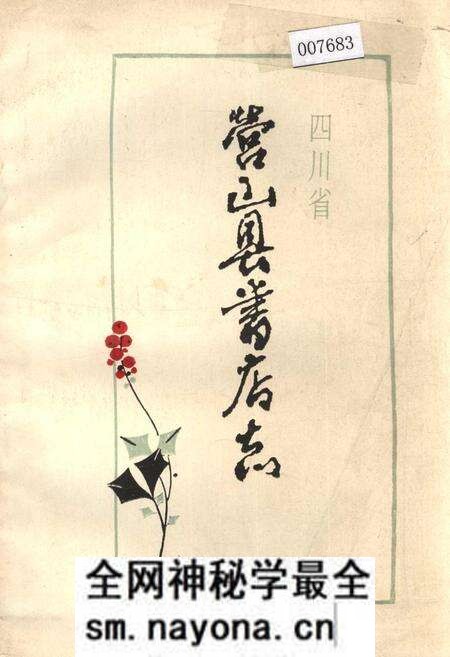 007683
四川省
营山县書店志
全网神秘学最全
sm.nayona.cn